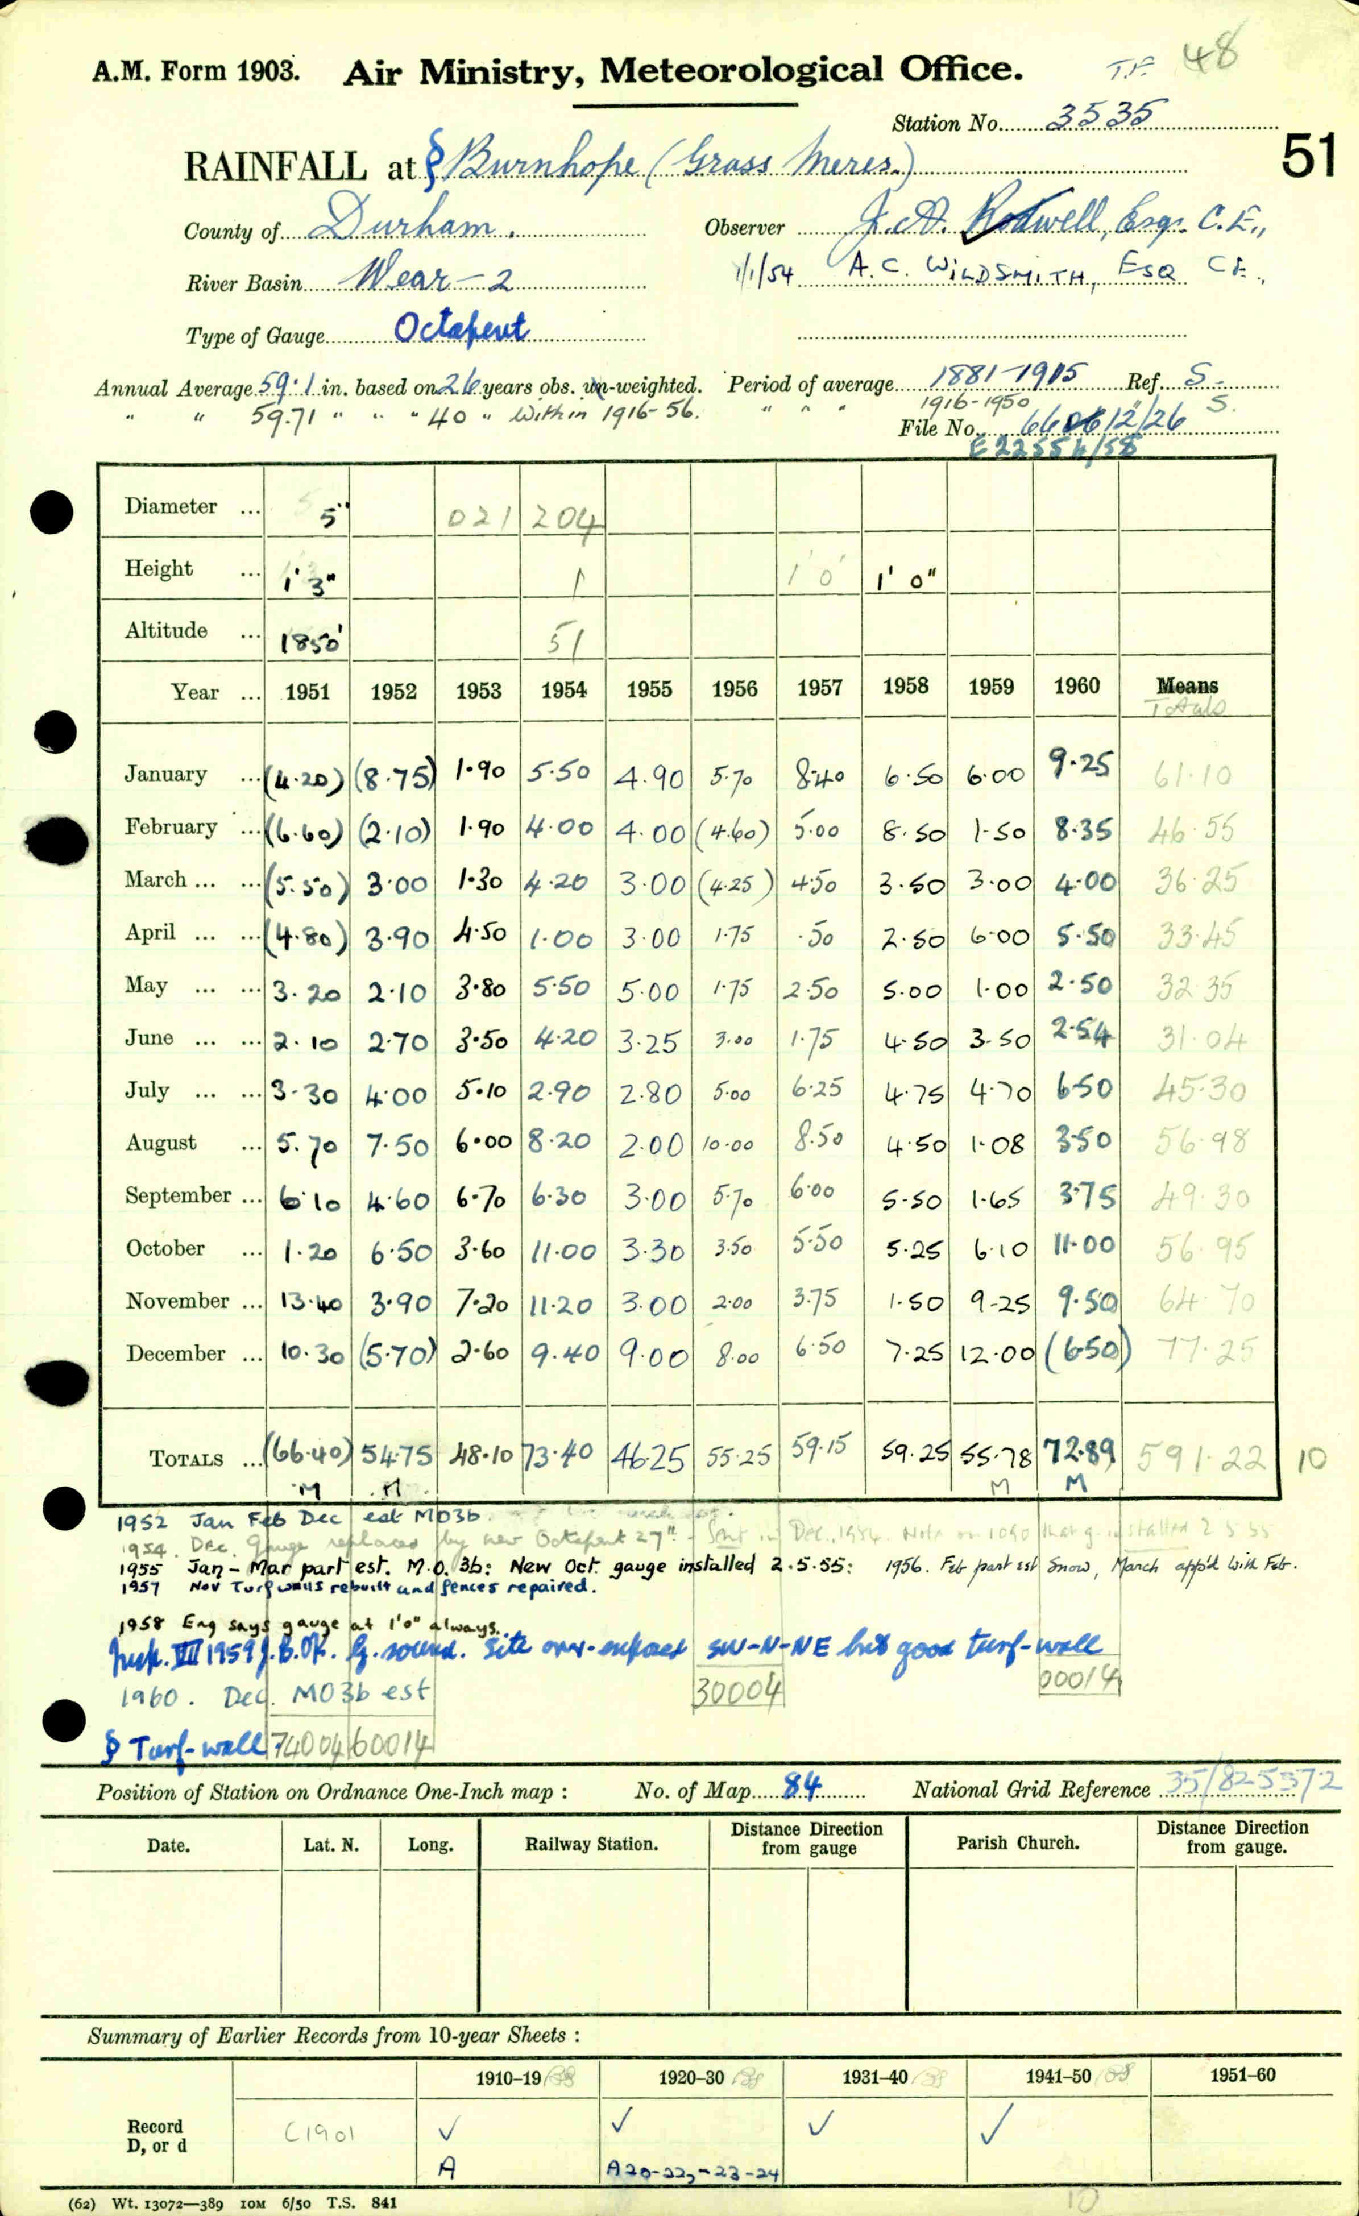 A.M. Form 1903. Air Ministry, Meteorological Office. T.P. 48
Station No. 3535
51
RAINFALL at § Burnhope (Grass Meres.)
County of Durham. Observer J. A. Rodwell, Esq. C.E.,
River Basin Wear - 2 1/1/54 A. C. WILDSMITH, ESQ C.E.,
Type of Gauge Octapent
Annual Average 59.1 in. based on 26 years obs. un-weighted. Period of average 1881-1915 Ref. S.
" " 59.71 " " " 40 " Within 1916-56. " " " 1916-1950 " S.
File No. 12/26
E 22554/58
Diameter ... 5" 021 204
Height ... 1' 3" 1 1' 0" 1' 0"
Altitude ... 1850' 51
Year ... 1951 1952 1953 1954 1955 1956 1957 1958 1959 1960 Means
Totals
January ... (4.20) (8.75) 1.90 5.50 4.90 5.70 8.40 6.50 6.00 9.25 61.10
February ... (6.60) (2.10) 1.90 4.00 4.00 (4.60) 5.00 8.50 1.50 8.35 46.55
March ... ... (5.50) 3.00 1.30 4.20 3.00 (4.25) 4.50 3.50 3.00 4.00 36.25
April ... ... (4.80) 3.90 4.50 1.00 3.00 1.75 .50 2.50 6.00 5.50 33.45
May ... ... 3.20 2.10 3.80 5.50 5.00 1.75 2.50 5.00 1.00 2.50 32.35
June ... ... 2.10 2.70 3.50 4.20 3.25 3.00 1.75 4.50 3.50 2.54 31.04
July ... ... 3.30 4.00 5.10 2.90 2.80 5.00 6.25 4.75 4.70 6.50 45.30
August ... 5.70 7.50 6.00 8.20 2.00 10.00 8.50 4.50 1.08 3.50 56.98
September ... 6.10 4.60 6.70 6.30 3.00 5.70 6.00 5.50 1.65 3.75 49.30
October ... 1.20 6.50 3.60 11.00 3.30 3.50 5.50 5.25 6.10 11.00 56.95
November ... 13.40 3.90 7.20 11.20 3.00 2.00 3.75 1.50 9.25 9.50 64.70
December ... 10.30 (5.70) 2.60 9.40 9.00 8.00 6.50 7.25 12.00 (6.50) 77.25
TOTALS ... (66.40) 54.75 48.10 73.40 46.25 55.25 59.15 59.25 55.78 72.89 591.22 10
M M M M
1952 Jan Feb Dec est MO3b
1954. Dec. Gauge replaced by new Octapent 27" - Sent in Dec. 1954. Note on 1090 that g. installed 2 5 55
1955 Jan - Mar part est. M.O. 3b: New Oct. gauge installed 2.5.55: 1956. Feb part est Snow, March app'd with Feb.
1957 Nov Turf walls rebuilt and fences repaired.
1958 Eng says gauge at 1'0" always.
Insp. VII 1959 J.B. OK. G. sound. Site over-exposed SW-N-NE but good turf-wall
1960. Dec. MO3b est 30004 00014
§ Turf-wall 74004 60014
Position of Station on Ordnance One-Inch map : No. of Map 84 National Grid Reference 35/825372
Date. Lat. N. Long. Railway Station. Distance Direction from gauge Parish Church. Distance Direction from gauge.
Summary of Earlier Records from 10-year Sheets :
1910-19 1920-30 1931-40 1941-50 1951-60
Record D, or d C1901 ✓ ✓ ✓ ✓
A A20-22,-23-24
(62) Wt. 13072—389 10M 6/50 T.S. 841 10